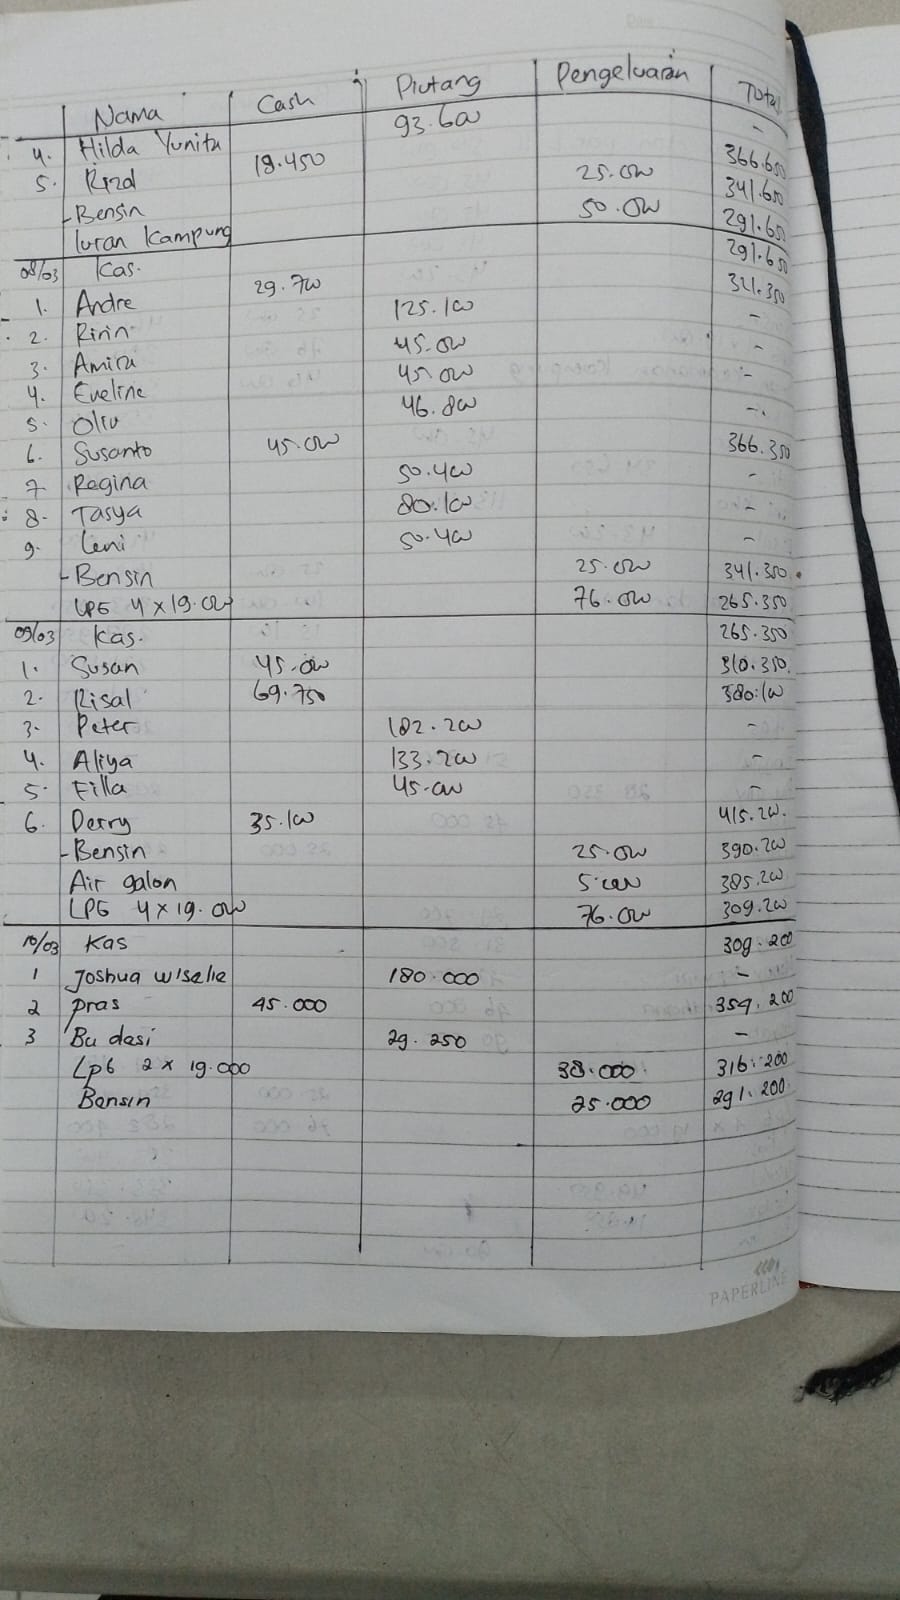 Nama Cash Piutang Pengeluaran Total
4. Hilda Yunita 93.600 -
5. Rizal 18.450 366.650
- Bensin 25.000 341.650
Iuran Kampung 50.000 291.650
08/03 Kas. 291.650
1. Andre 29.700 321.350
2. Ririn 125.100 -
3. Amira 45.000 -
4. Eveline 45.000 -
5. Oliv 46.800 -
6. Susanto 45.000 366.350
7. Regina 50.400 -
8. Tasya 80.100 -
9. Leni 50.400 -
- Bensin 25.000 341.350
LPG 4 x 19.000 76.000 265.350
09/03 Kas. 265.350
1. Susan 45.000 310.350
2. Risal 69.750 380.100
3. Peter 182.200 -
4. Aliya 133.200 -
5. Filla 45.000 -
6. Derry 35.100 415.200
- Bensin 25.000 390.200
Air galon 5.000 385.200
LPG 4 x 19.000 76.000 309.200
10/03 Kas 309.200
1 Joshua wiselie 180.000 -
2 pras 45.000 354.200
3 Bu dasi 29.250 -
LpG 2 x 19.000 38.000 316.200
Bensin 25.000 291.200
PAPERLINE